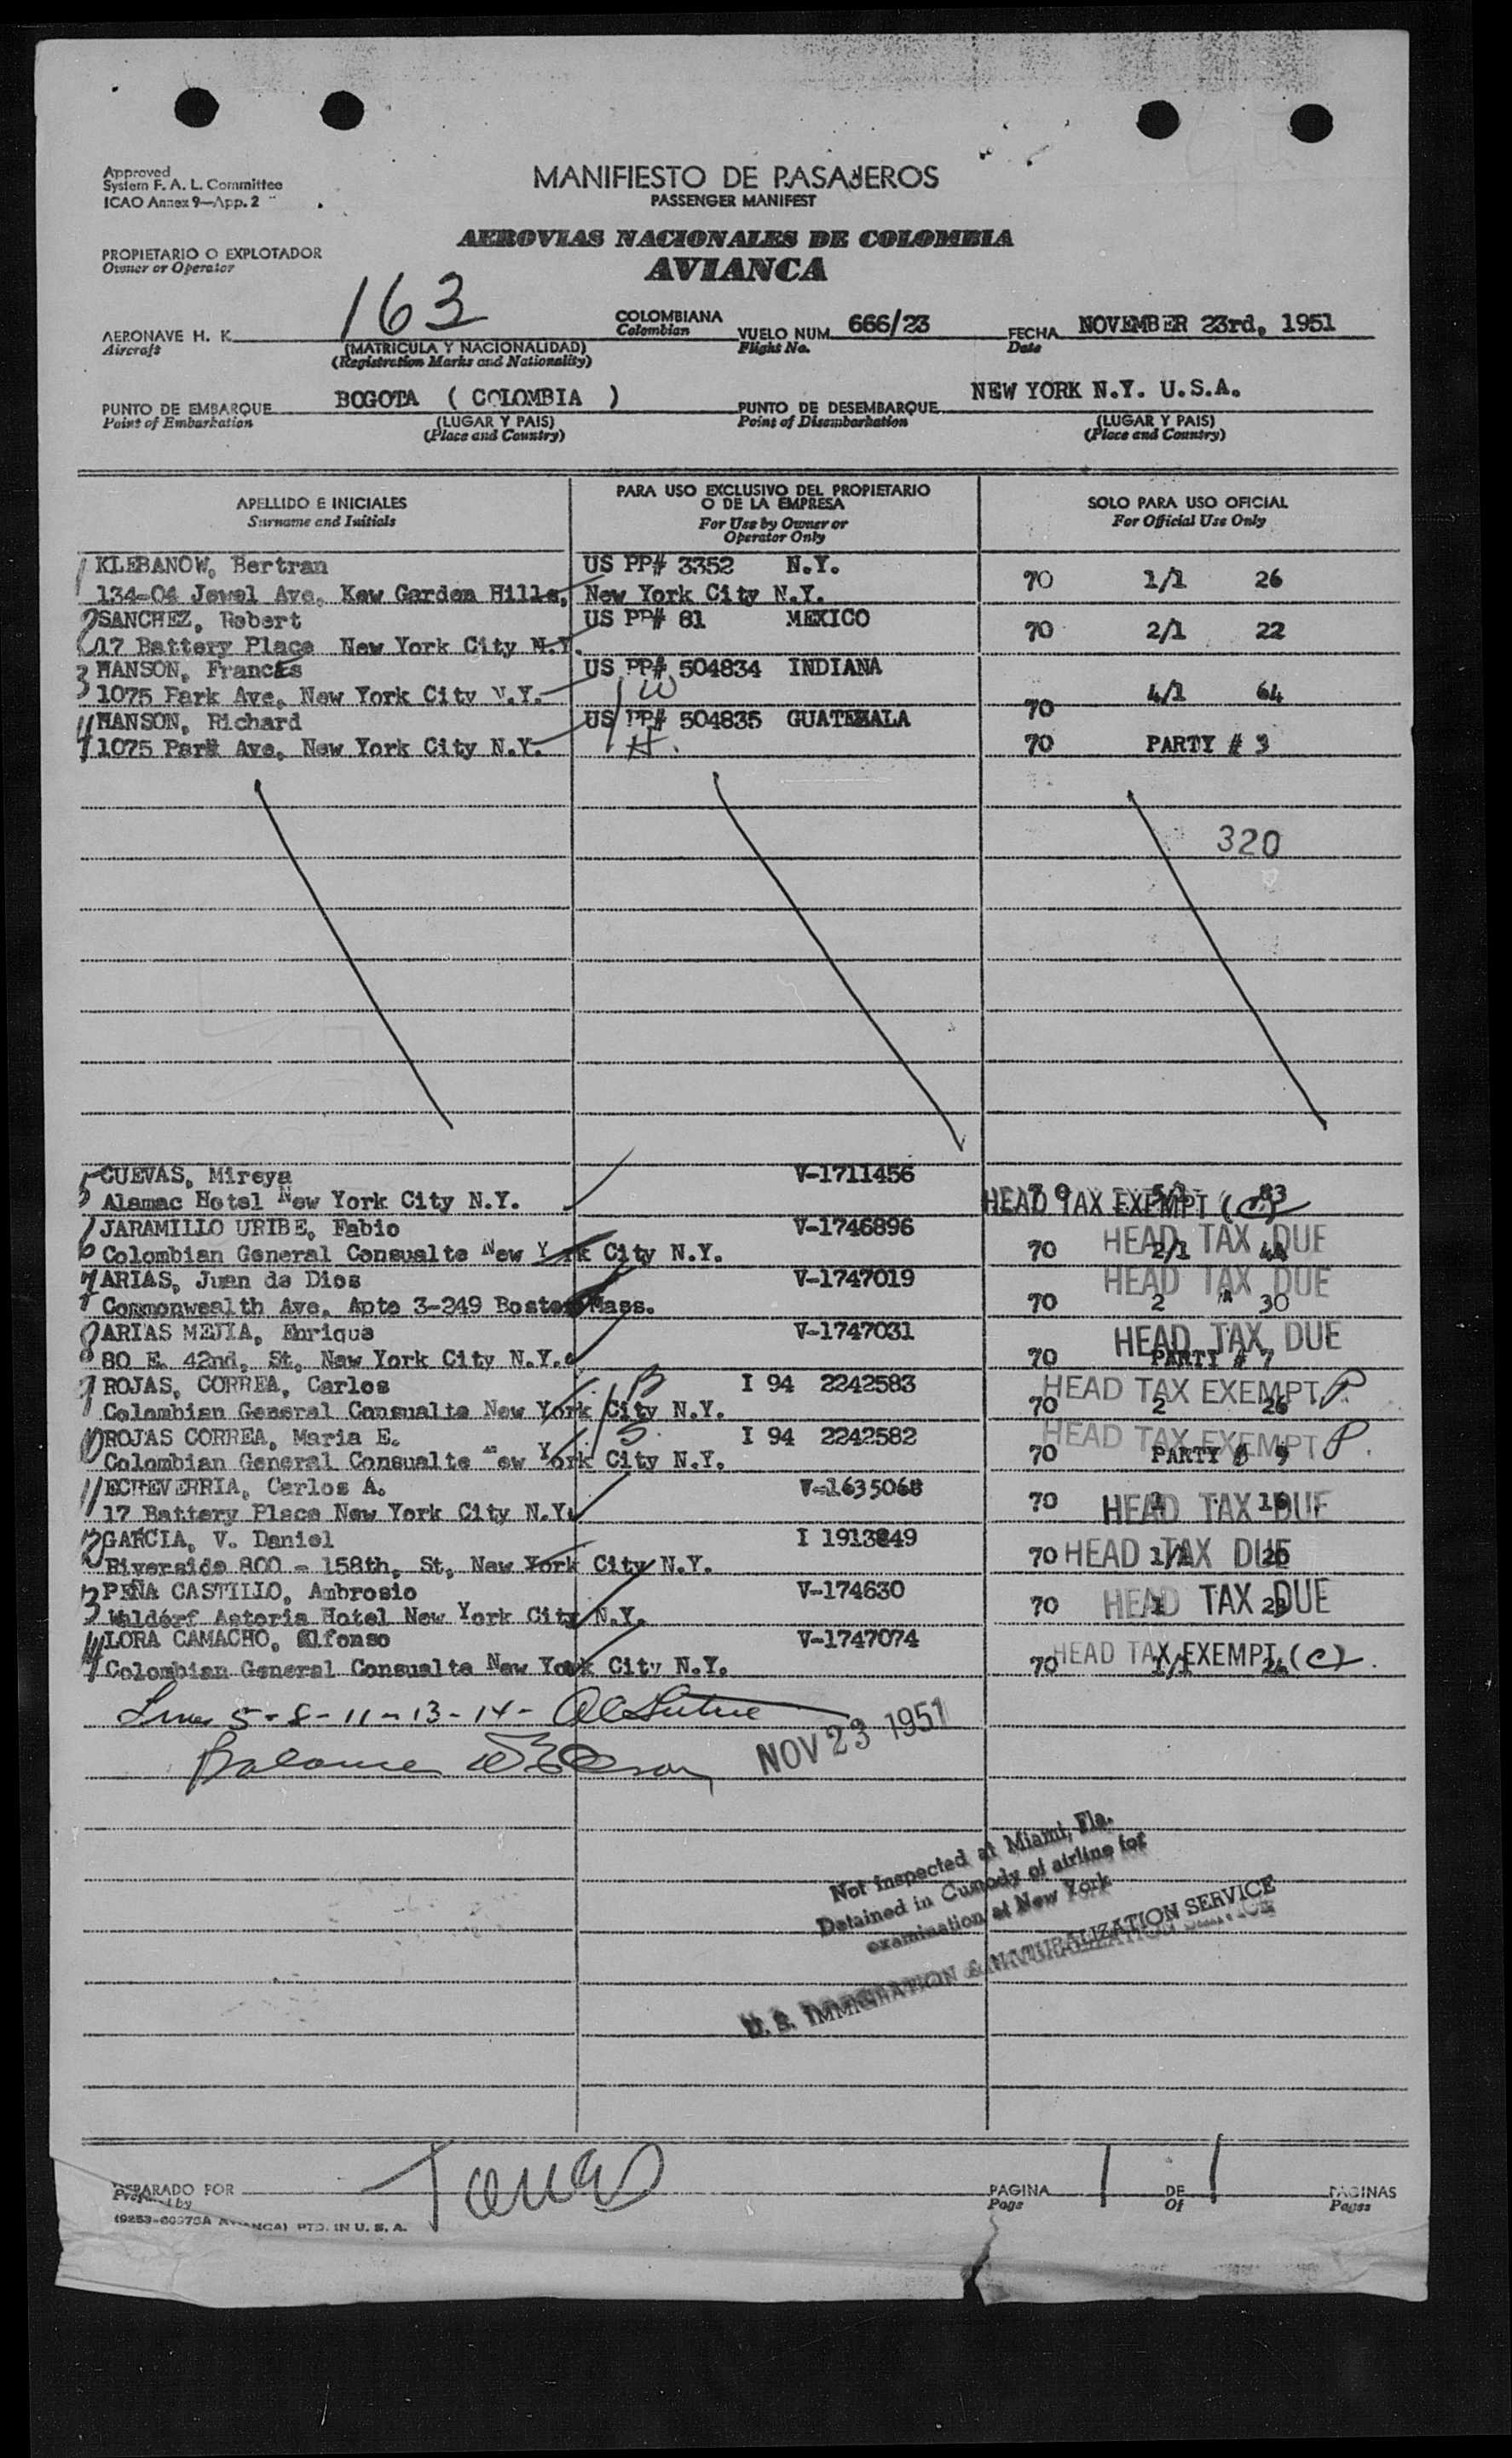 Approved
System F. A. L. Committee
ICAO Annex 9—App. 2
MANIFIESTO DE PASAJEROS
PASSENGER MANIFEST
AEROVIAS NACIONALES DE COLOMBIA
AVIANCA
PROPIETARIO O EXPLOTADOR
Owner or Operator
AERONAVE H. K. 163 COLOMBIANA VUELO NUM. 666/23 FECHA NOVEMBER 23rd, 1951
Aircraft (MATRICULA Y NACIONALIDAD) Colombian Flight No. Date
(Registration Marks and Nationality)
PUNTO DE EMBARQUE BOGOTA ( COLOMBIA ) PUNTO DE DESEMBARQUE NEW YORK N.Y. U.S.A.
Point of Embarkation (LUGAR Y PAIS) Point of Disembarkation (LUGAR Y PAIS)
(Place and Country) (Place and Country)
APELLIDO E INICIALES PARA USO EXCLUSIVO DEL PROPIETARIO SOLO PARA USO OFICIAL
O DE LA EMPRESA
Surname and Initials For Use by Owner or For Official Use Only
Operator Only
1 KLEBANOW, Bertran US PP# 3352 N.Y.
134-04 Jewel Ave, Kew Garden Hills, New York City N.Y. 70 1/1 26
2 SANCHEZ, Robert US PP# 81 MEXICO
17 Battery Place New York City N.Y. 70 2/1 22
3 HANSON, Frances US PP# 504834 INDIANA
1075 Park Ave, New York City N.Y. W 70 4/1 64
4 HANSON, Richard US PP# 504835 GUATEMALA
1075 Park Ave, New York City N.Y. H. 70 PARTY # 3
320
5 CUEVAS, Mireya V-1711456
Alamac Hotel New York City N.Y. 70 83 HEAD TAX EXEMPT (C)
6 JARAMILLO URIBE, Fabio V-1746896
Colombian General Consualte New York City N.Y. 70 2/1 44 HEAD TAX DUE
7 ARIAS, Juan de Dios V-1747019
Commonwealth Ave, Apto 3-249 Boston Mass. 70 2 30 HEAD TAX DUE
8 ARIAS MEJIA, Enrique V-1747031
80 E. 42nd, St, New York City N.Y. 70 PARTY # 7 HEAD TAX DUE
9 ROJAS, CORREA, Carlos B I 94 2242583
Colombian General Consualte New York City N.Y. 70 2 26 HEAD TAX EXEMPT P.
10 ROJAS CORREA, Maria E. S. I 94 2242582
Colombian General Consualte New York City N.Y. 70 PARTY # 9 HEAD TAX EXEMPT P.
11 ECHEVERRIA, Carlos A. V-1635068
17 Battery Place New York City N.Y. 70 HEAD TAX DUE
12 GARCIA, V. Daniel I 1913849
Riverside 800 - 158th, St, New York City N.Y. 70 1/1 20 HEAD TAX DUE
13 PEÑA CASTILLO, Ambrosio V-174630
Waldorf Astoria Hotel New York City N.Y. 70 1 23 HEAD TAX DUE
14 LORA CAMACHO, Alfonso V-1747074
Colombian General Consualte New York City N.Y. 70 1/1 24 HEAD TAX EXEMPT (C)
Lines 5-8-11-13-14-
Balance
NOV 23 1951
Not inspected at Miami, Fla.
Detained in Custody of airline for
examination at New York
U. S. IMMIGRATION & NATURALIZATION SERVICE
PREPARADO POR PAGINA 1 DE 1 PAGINAS
Prepared by Page Of Pages
AVIANCA) PTD. IN U. S. A.